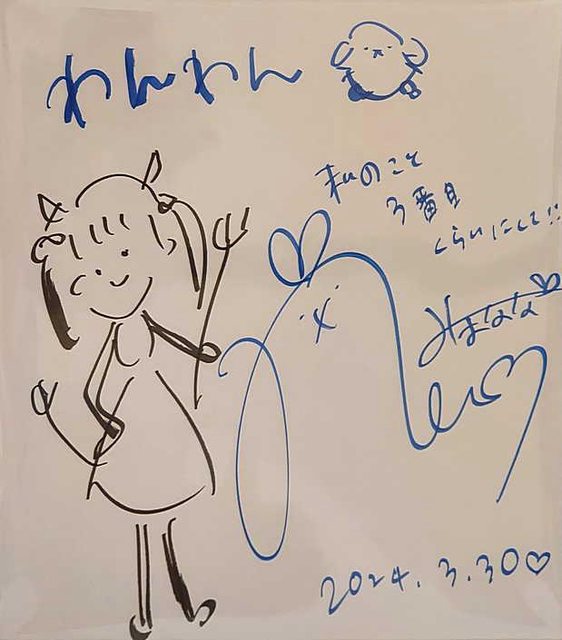 わんわん
私のこと
3番目
くらいにして!!
2024.3.30♡